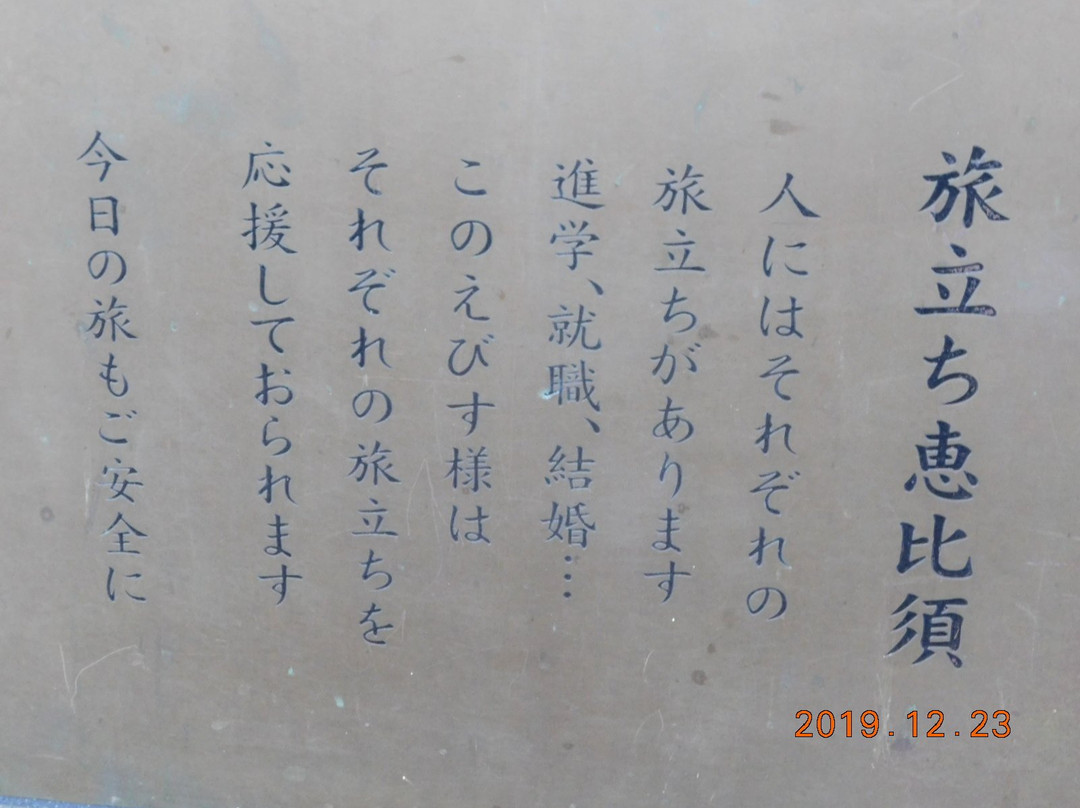 旅立ち恵比須
人にはそれぞれの
旅立ちがあります
進学、就職、結婚…
このえびす様は
それぞれの旅立ちを
応援しておられます
今日の旅もご安全に
2019.12.23